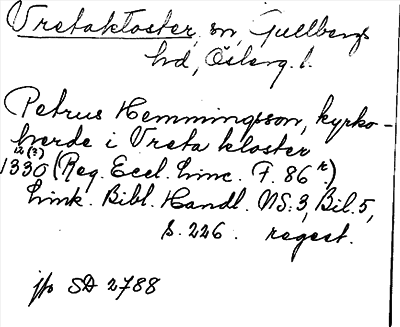 Vretakloster, sn, Gullbergs
hd, Österg. l.
Petrus Hemmingsson, kyrko-
herde i Vreta kloster
12 (?)
1330 (Reg. Eccl. Linc. F. 86 r)
Link. Bibl. Handl. NS: 3, Bil. 5,
s. 226. regest.
jfr SD 2788